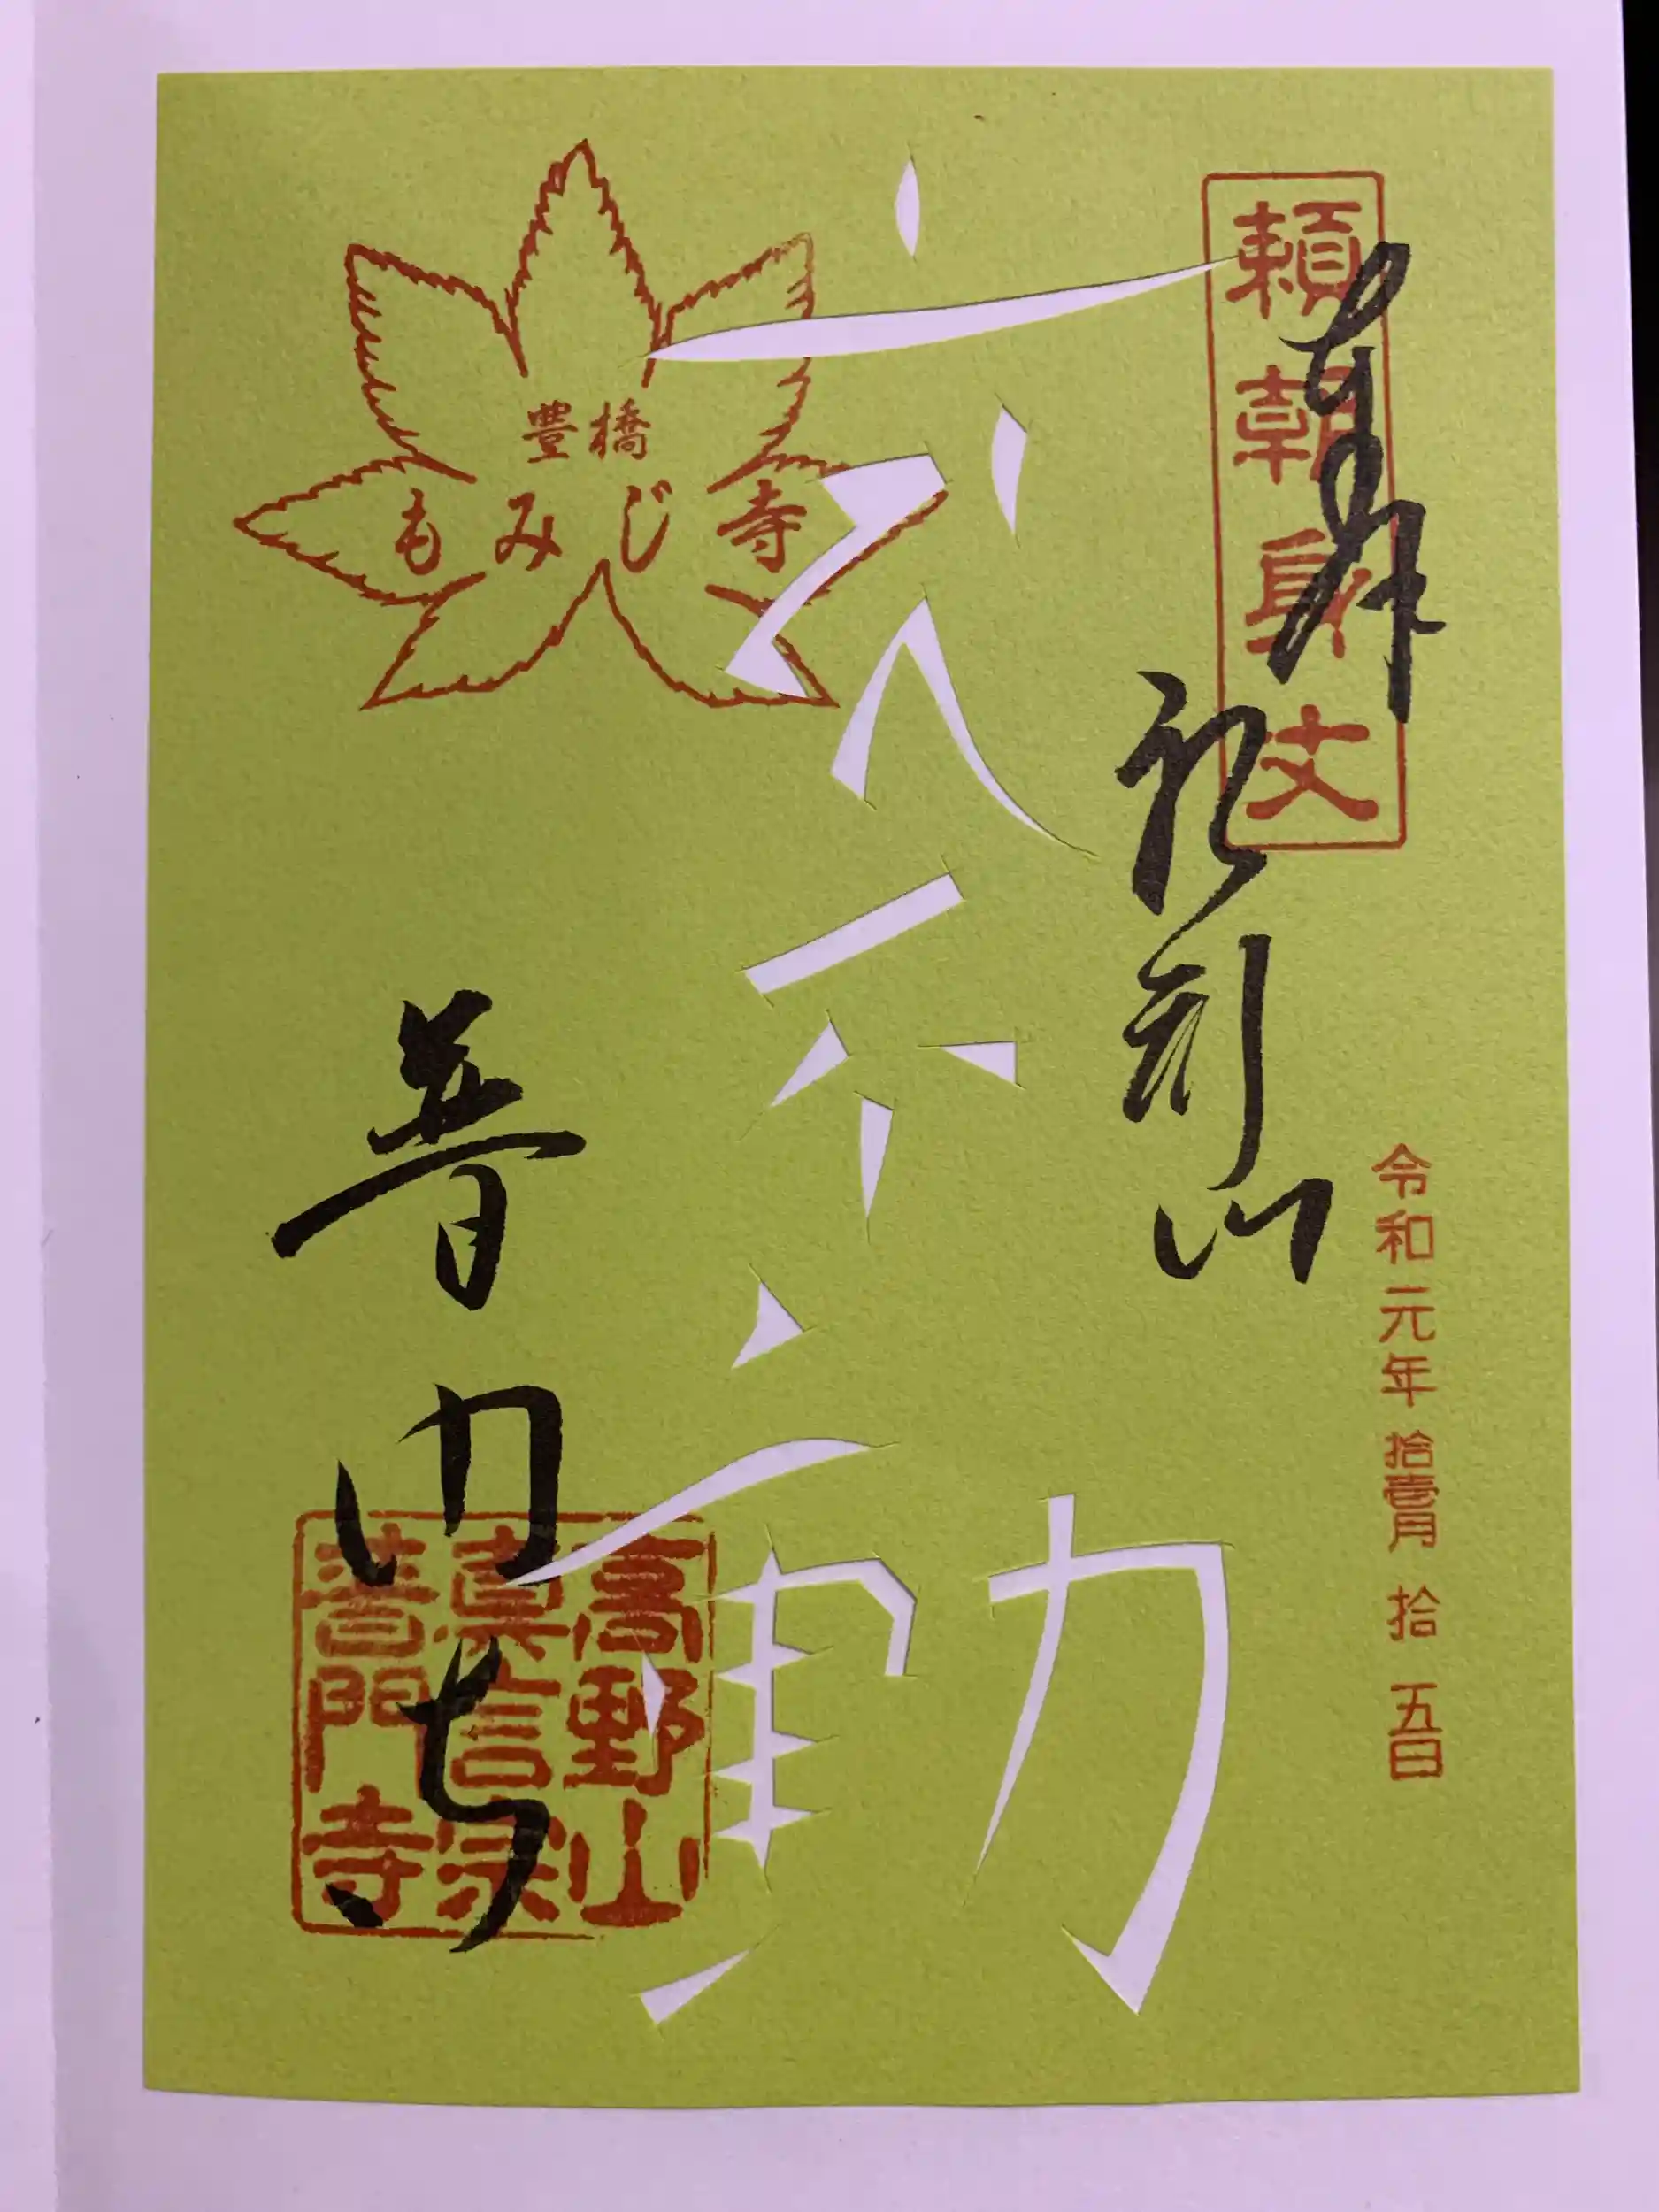 頼朝身丈
奉拝
船形山
令和元年拾壹月拾五日
六不動
豊橋
もみじ寺
普門寺
高野山
真言宗
普門寺